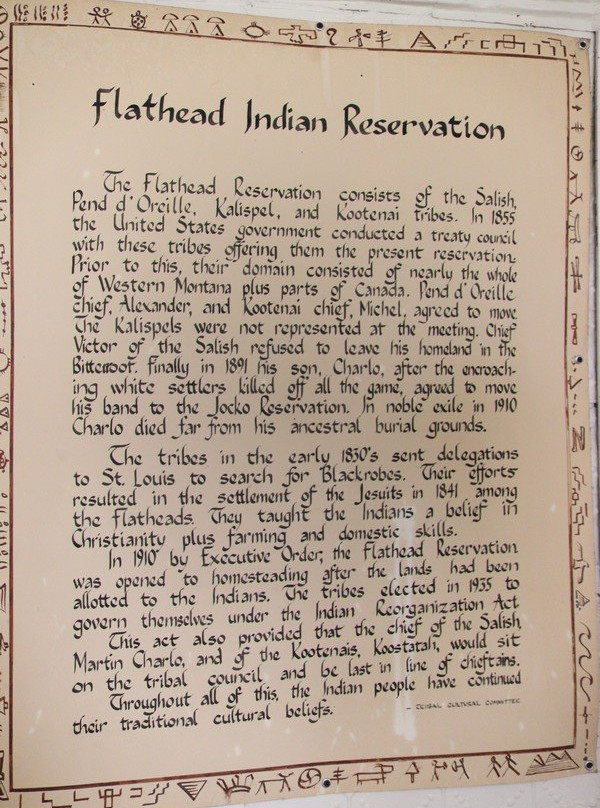 Flathead Indian Reservation
The Flathead Reservation consists of the Salish,
Pend d'Oreille, Kalispel, and Kootenai tribes. In 1855
the United States government conducted a treaty council
with these tribes offering them the present reservation.
Prior to this, their domain consisted of nearly the whole
of Western Montana plus parts of Canada. Pend d'Oreille
chief, Alexander, and Kootenai chief, Michel, agreed to move
The Kalispels were not represented at the meeting. Chief
Victor of the Salish refused to leave his homeland in the
Bitterroot. Finally in 1891 his son, Charlo, after the encroach-
ing white settlers killed off all the game, agreed to move
his band to the Jocko Reservation. In noble exile in 1910
Charlo died far from his ancestral burial grounds.
The tribes in the early 1830's sent delegations
to St. Louis to search for Blackrobes. Their efforts
resulted in the settlement of the Jesuits in 1841 among
the Flatheads. They taught the Indians a belief in
Christianity plus farming and domestic skills.
In 1910 by Executive Order, the Flathead Reservation
was opened to homesteading after the lands had been
allotted to the Indians. The tribes elected in 1935 to
govern themselves under the Indian Reorganization Act
This act also provided that the chief of the Salish,
Martin Charlo, and of the Kootenais, Koostatah, would sit
on the tribal council and be last in line of chieftains.
Throughout all of this, the Indian people have continued
their traditional cultural beliefs.
- TRIBAL CULTURAL COMMITTEE